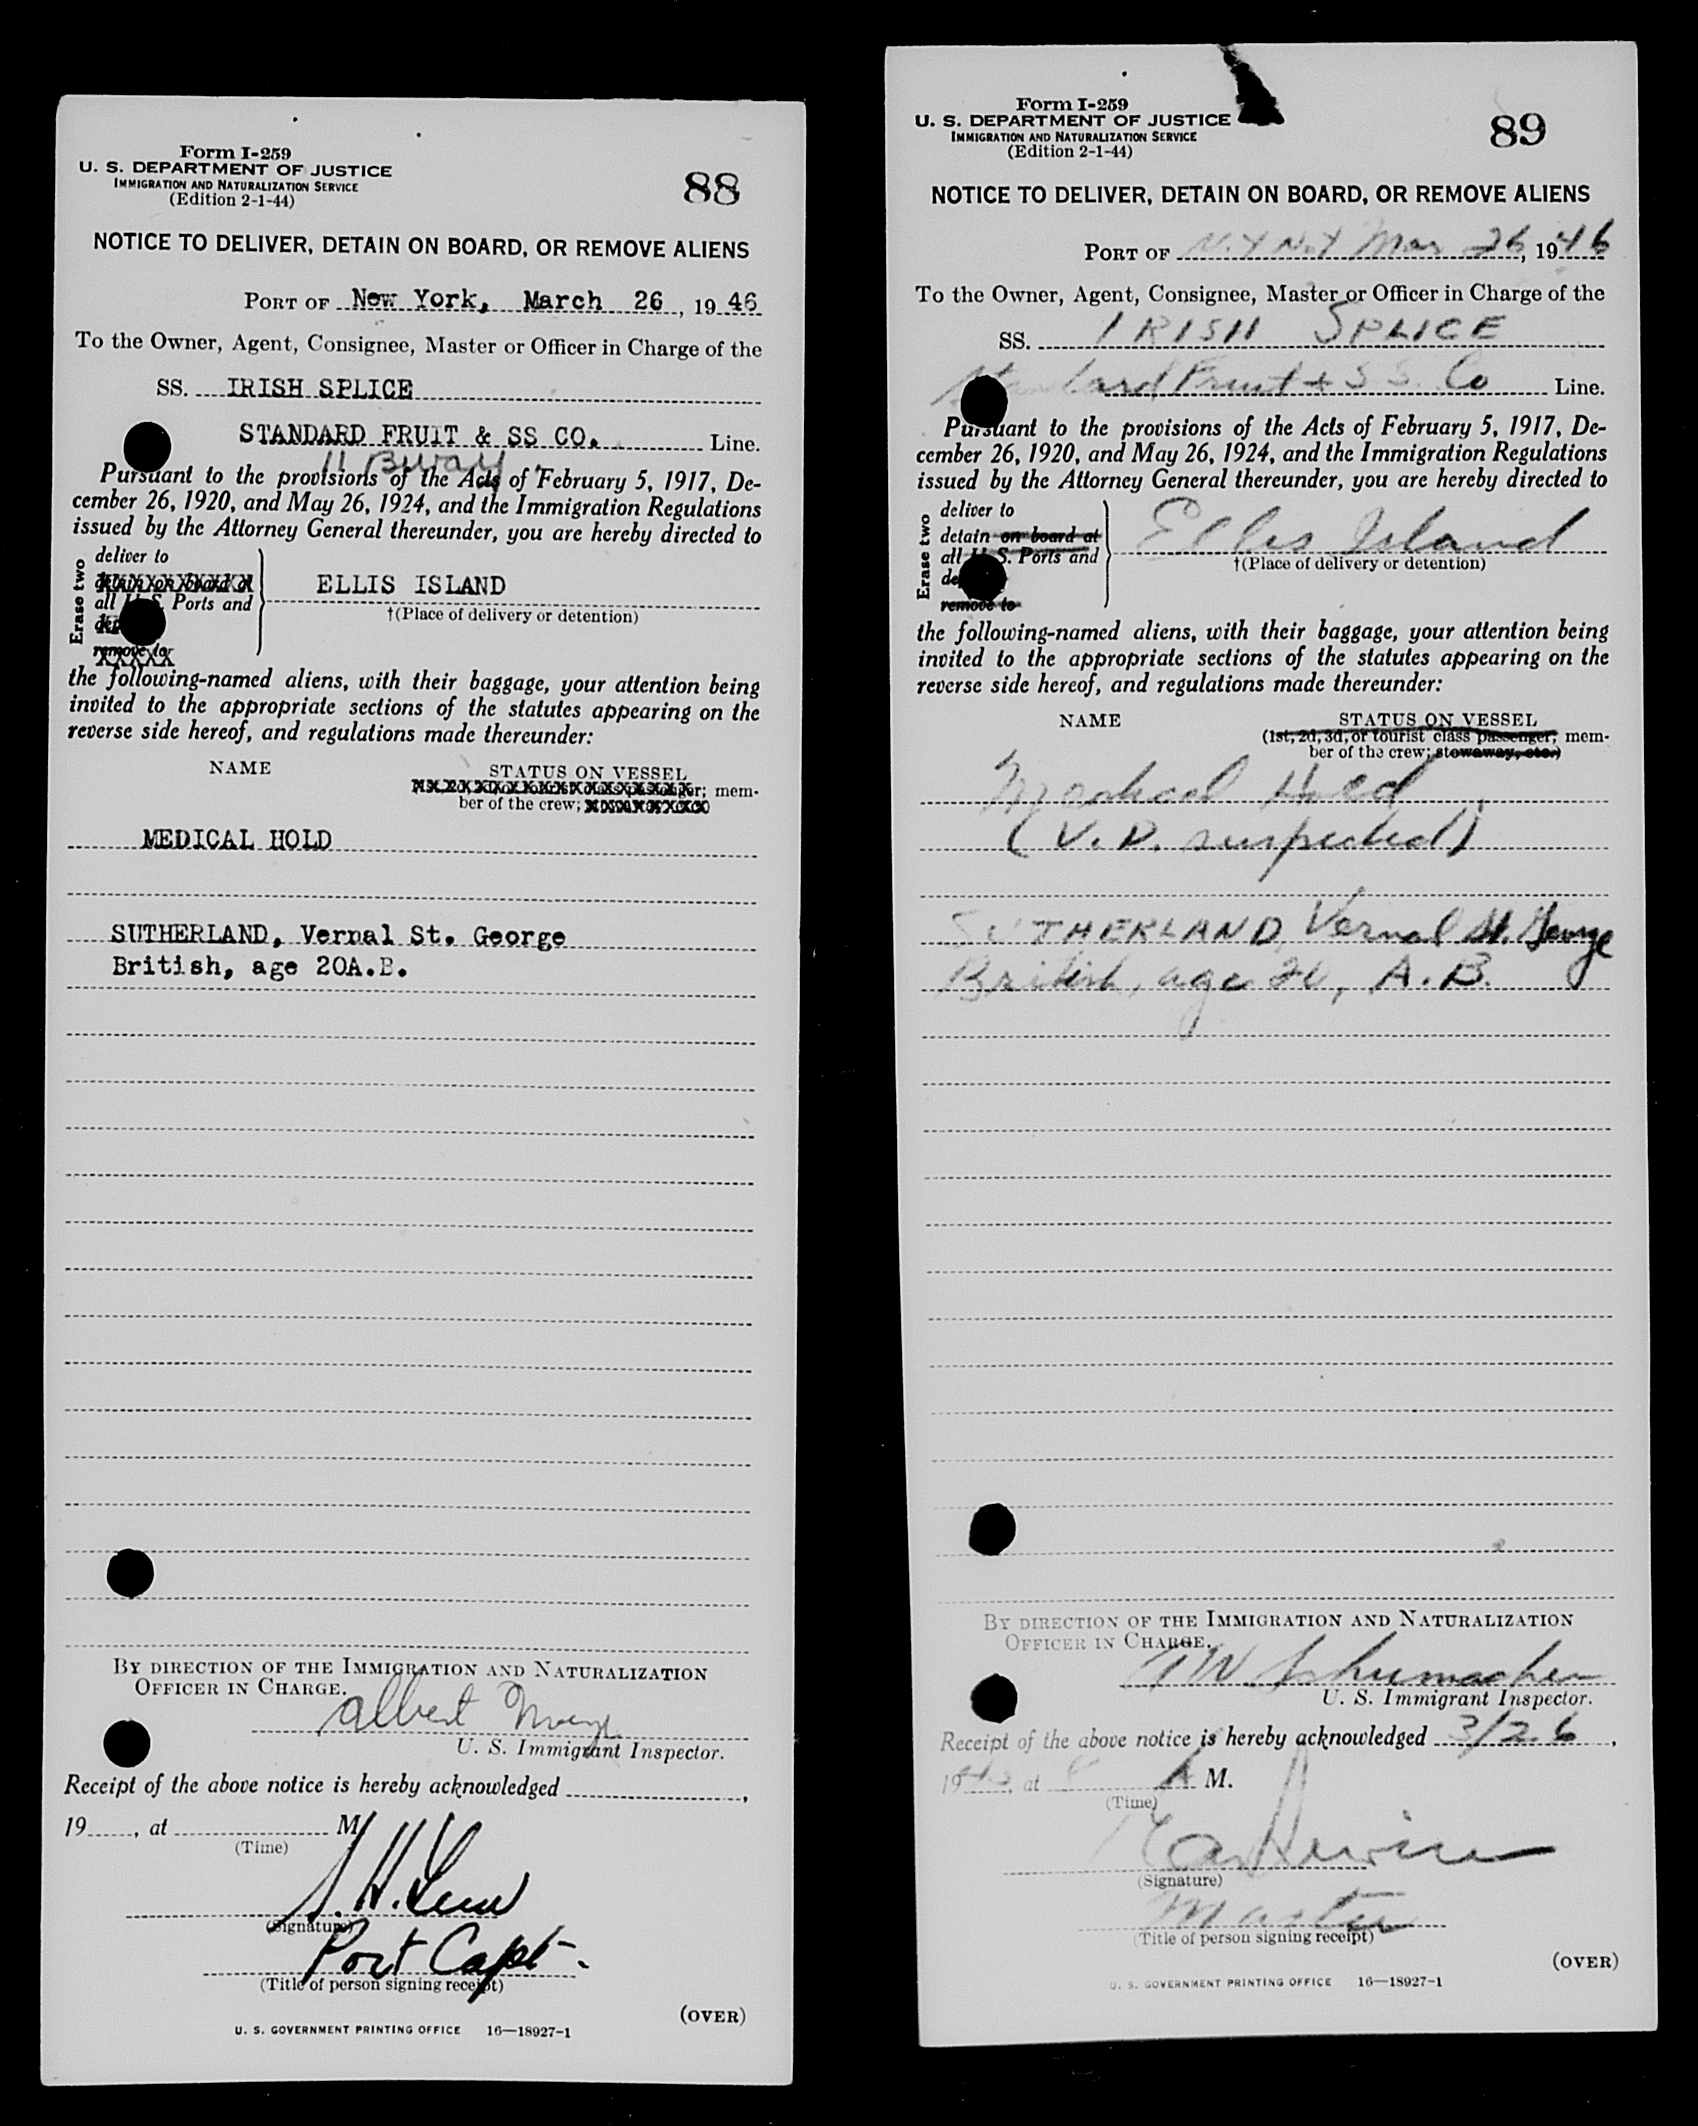 Form I-259
U. S. DEPARTMENT OF JUSTICE
IMMIGRATION AND NATURALIZATION SERVICE
(Edition 2-1-44)
88
NOTICE TO DELIVER, DETAIN ON BOARD, OR REMOVE ALIENS
PORT OF New York, March 26, 1946
To the Owner, Agent, Consignee, Master or Officer in Charge of the
SS. IRISH SPLICE
STANDARD FRUIT & SS CO. Line.
11 Bway
Pursuant to the provisions of the Acts of February 5, 1917, De-
cember 26, 1920, and May 26, 1924, and the Immigration Regulations
issued by the Attorney General thereunder, you are hereby directed to
Erase two
deliver to
detain on board at
all U. S. Ports and
remove to
ELLIS ISLAND
†(Place of delivery or detention)
the following-named aliens, with their baggage, your attention being
invited to the appropriate sections of the statutes appearing on the
reverse side hereof, and regulations made thereunder:
NAME STATUS ON VESSEL
mem-
ber of the crew;
MEDICAL HOLD
SUTHERLAND, Vernal St. George
British, age 20A.B.
BY DIRECTION OF THE IMMIGRATION AND NATURALIZATION
OFFICER IN CHARGE.
Albert
U. S. Immigrant Inspector.
Receipt of the above notice is hereby acknowledged ,
19 , at M.
(Time)
S. H.
(Signature)
Port Capt.
(Title of person signing receipt)
(OVER)
U. S. GOVERNMENT PRINTING OFFICE 16—18927-1
Form I-259
U. S. DEPARTMENT OF JUSTICE
IMMIGRATION AND NATURALIZATION SERVICE
(Edition 2-1-44)
89
NOTICE TO DELIVER, DETAIN ON BOARD, OR REMOVE ALIENS
PORT OF N.Y N.Y Mar 26, 1946
To the Owner, Agent, Consignee, Master or Officer in Charge of the
SS. IRISH SPLICE
Standard Fruit + S S. Co Line.
Pursuant to the provisions of the Acts of February 5, 1917, De-
cember 26, 1920, and May 26, 1924, and the Immigration Regulations
issued by the Attorney General thereunder, you are hereby directed to
Erase two
deliver to
detain on board at
all U. S. Ports and
remove to
Ellis Island
†(Place of delivery or detention)
the following-named aliens, with their baggage, your attention being
invited to the appropriate sections of the statutes appearing on the
reverse side hereof, and regulations made thereunder:
NAME STATUS ON VESSEL
(1st, 2d, 3d, or tourist class passenger; mem-
ber of the crew; stowaway, etc.)
Medical Hold
(V. D. suspected)
SUTHERLAND, Vernal St. George
British, age 20, A.B.
BY DIRECTION OF THE IMMIGRATION AND NATURALIZATION
OFFICER IN CHARGE.
Schumacher
U. S. Immigrant Inspector.
Receipt of the above notice is hereby acknowledged 3/26,
1946, at A M.
(Time)
(Signature)
Master
(Title of person signing receipt)
(OVER)
U. S. GOVERNMENT PRINTING OFFICE 16—18927-1